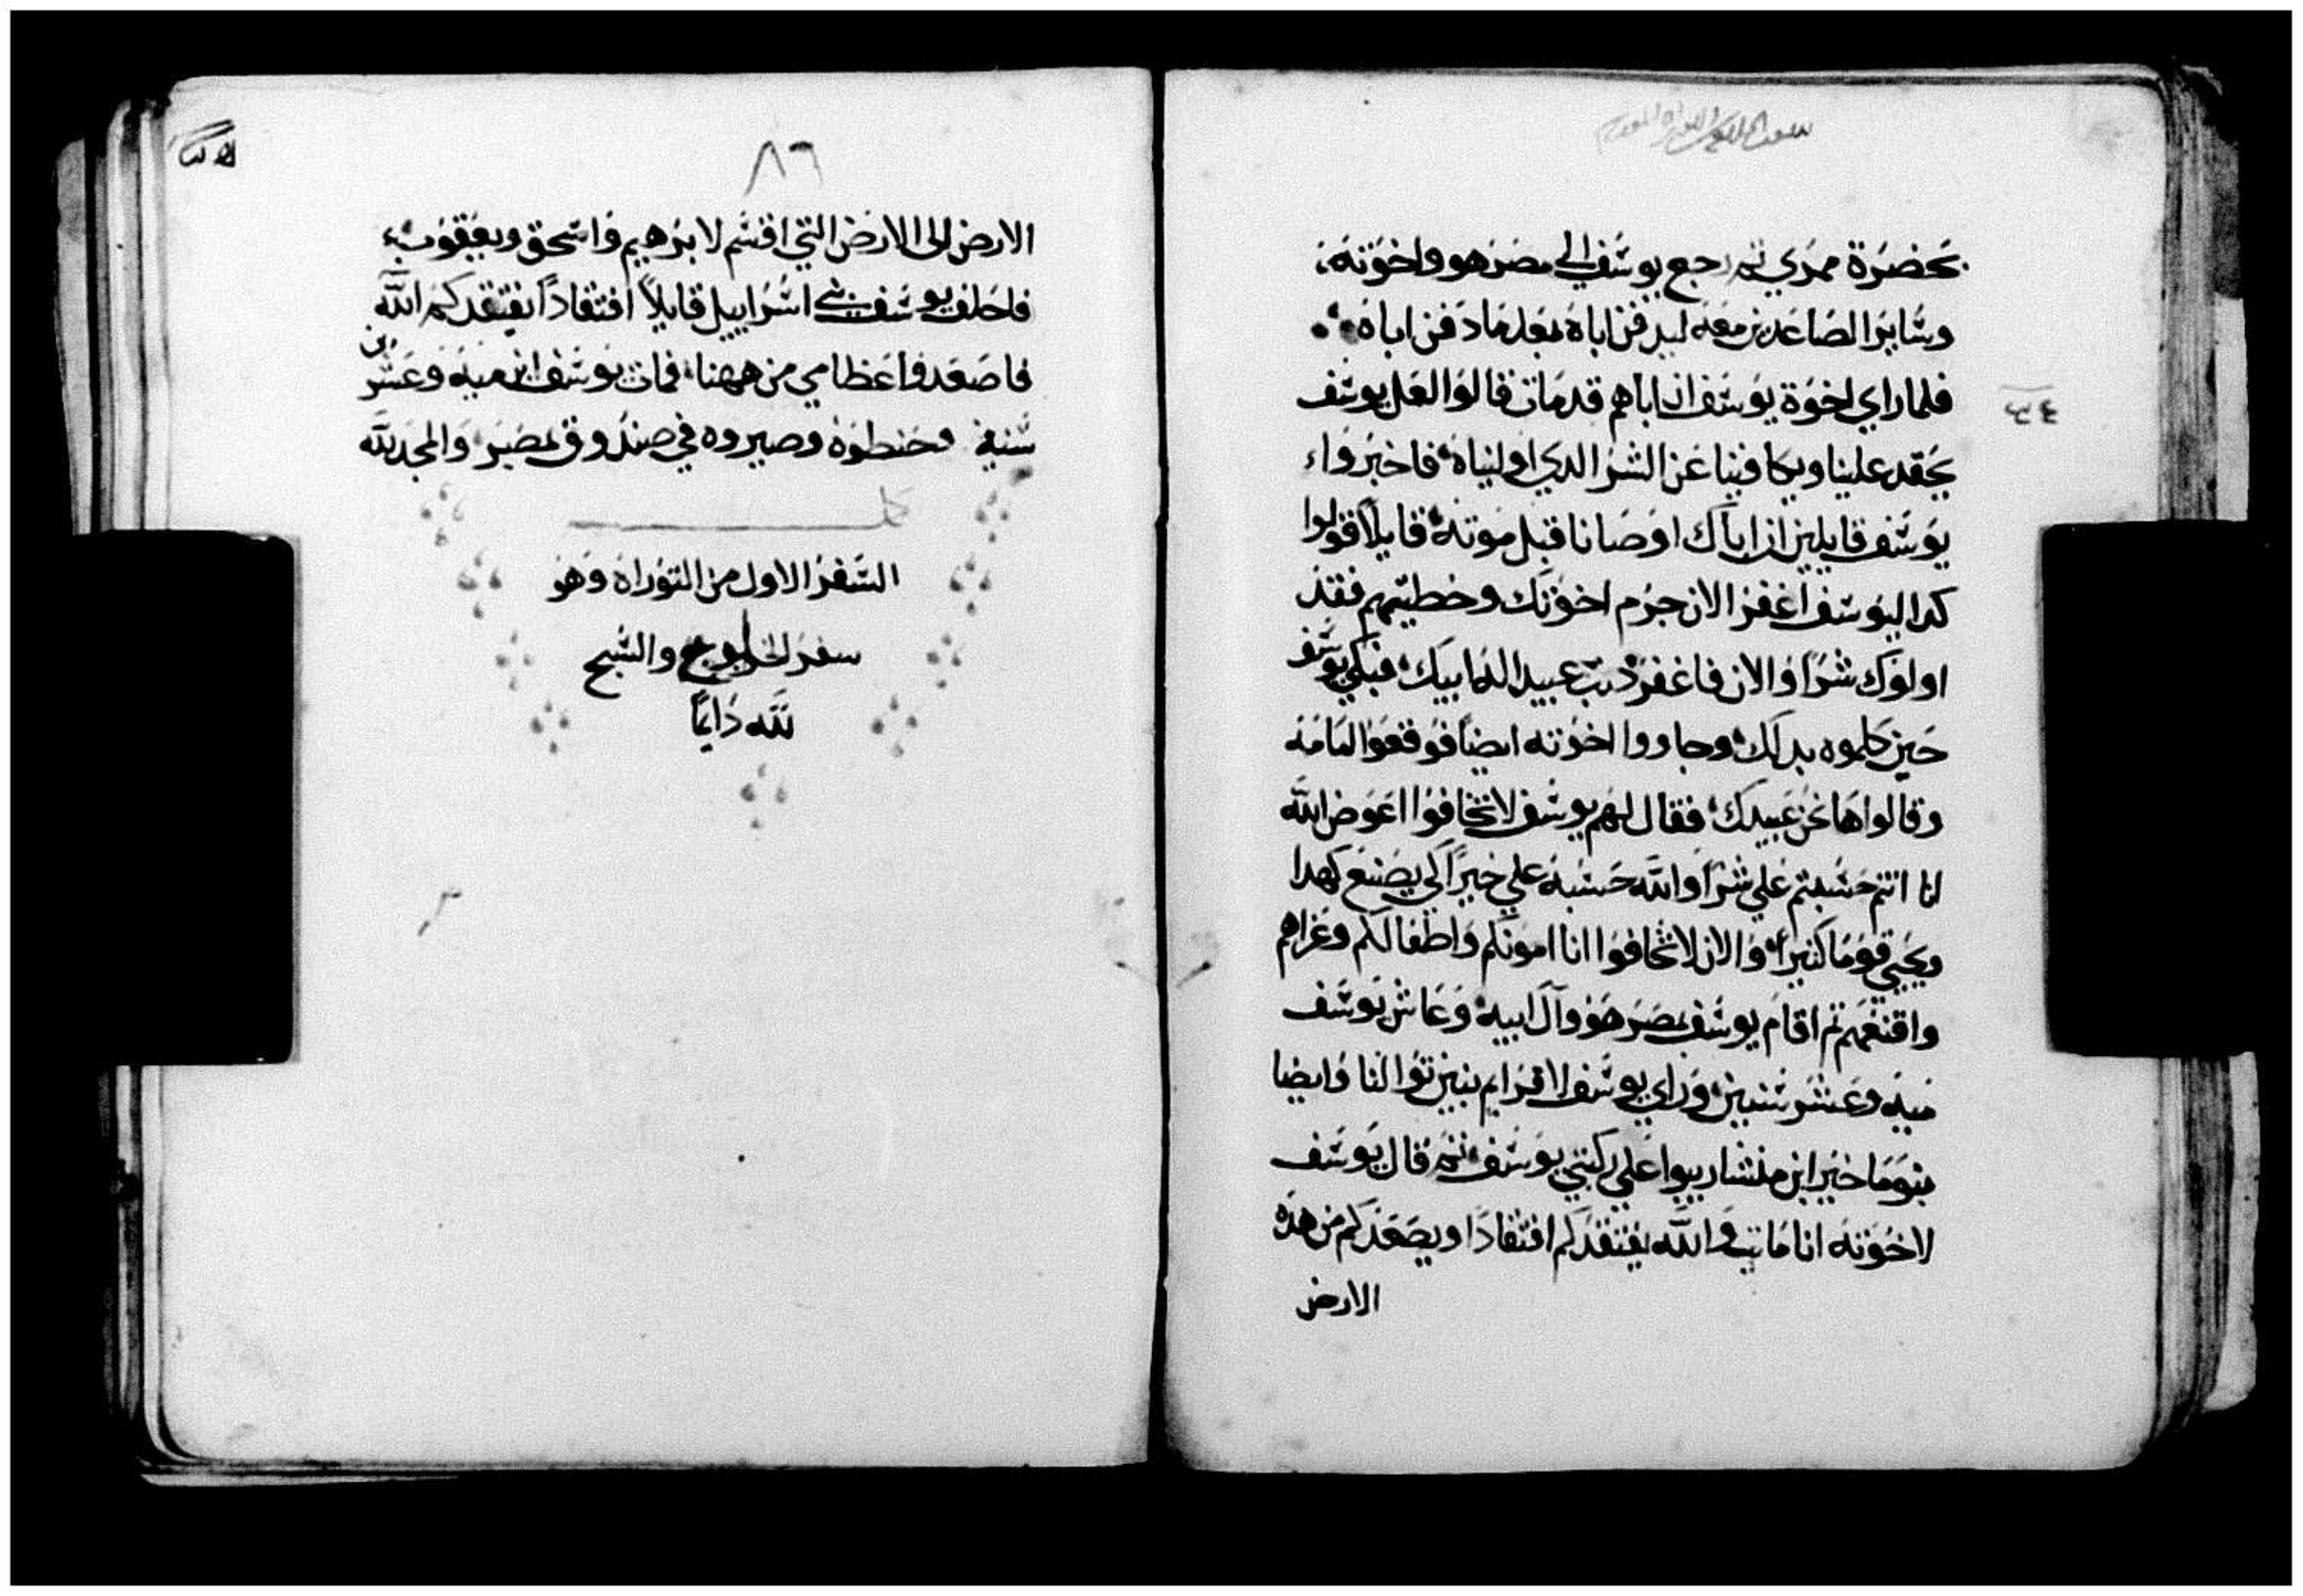 بحضرة ممري ثم رجع يوسف الي مصر هو واخوته
وساير الصاعدين معه ليدفن اباه بعد ما دفن اباه
فلما راي اخوة يوسف ان اباهم قد مات قالوا لعل يوسف
يحقد علينا ويكافينا عن الشر الدي اوليناه فاخبروا
يوسف قايلين ان اباك اوصانا قبل موته قايلا قولوا
كدا ليوسف اغفر الان جرم اخوتك وخطيتهم فقد
اولوك شرا والان فاغفر دنب عبيد اله ابيك فبكي يوسف
حين كلموه بدلك وجاووا اخوته ايضا فوقعوا امامه
وقالوا ها نحن عبيدك فقال لهم يوسف لا تخافوا اعوض الله
انا انتم حسبتم علي شرا والله حسبه علي خيرا لكي يصنع كهدا
ويحيي قوما كتيرا والان لا تخافوا انا امونكم واطفالكم وعزاهم
واقنعهم تم اقام يوسف بمصر هو وآل ابيه وعاش يوسف
ميه وعشر سنين وراي يوسف لافرايم بنين توالتا وايضا
بنو ماخير ابن منشا ربيوا علي ركبتي يوسف ثم قال يوسف
لاخوته انا مايت والله يفتقدكم افتقادا ويصعدكم من هده
الارض
٣٤
٨٦
الارض الى الارض التي اقسم لابرهيم واسحق ويعقوب
فاحلف يوسف بني اسراييل قايلا افتقادا يفتقدكم الله
فاصعدوا عظامي من ههنا فمات يوسف ابن ميه وعشر
سنة وحنطوه وصيروه في صندوق بمصر والمجد لله
كمل
السفر الاول من التوراه وهو
سفر الخلوج والسبح
لله دايما